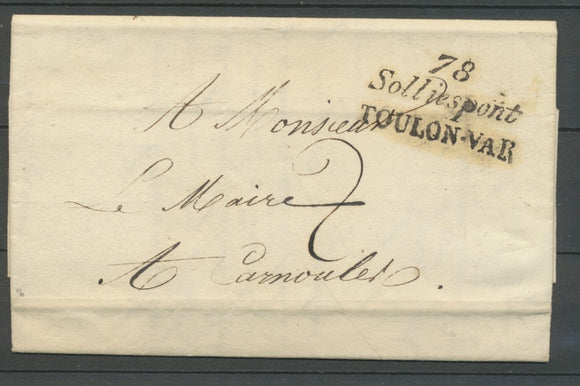 78
Solliespont
TOULON-VAR
A Monsieur
Le Maire
2
A Carnoules.